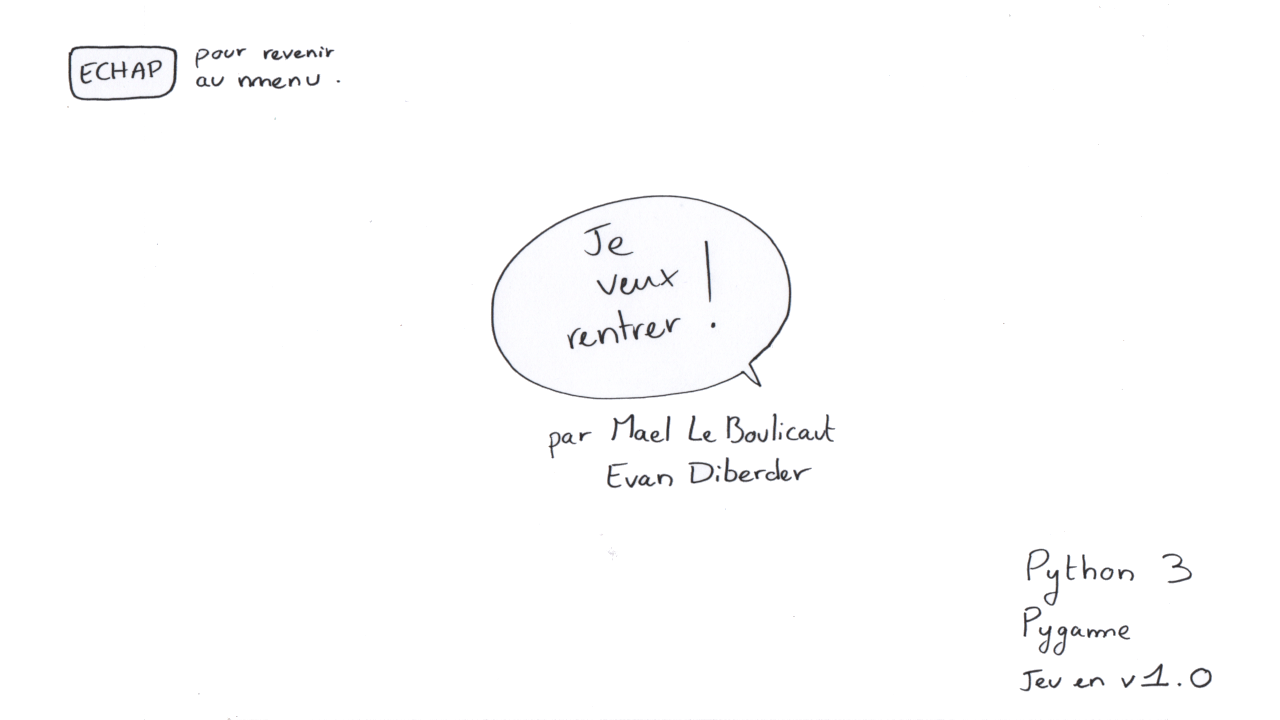 ECHAP
pour revenir
au menu.
Je
veux
rentrer !
par Mael Le Boulicaut
Evan Diberder
Python 3
Pygame
Jeu en v1.0